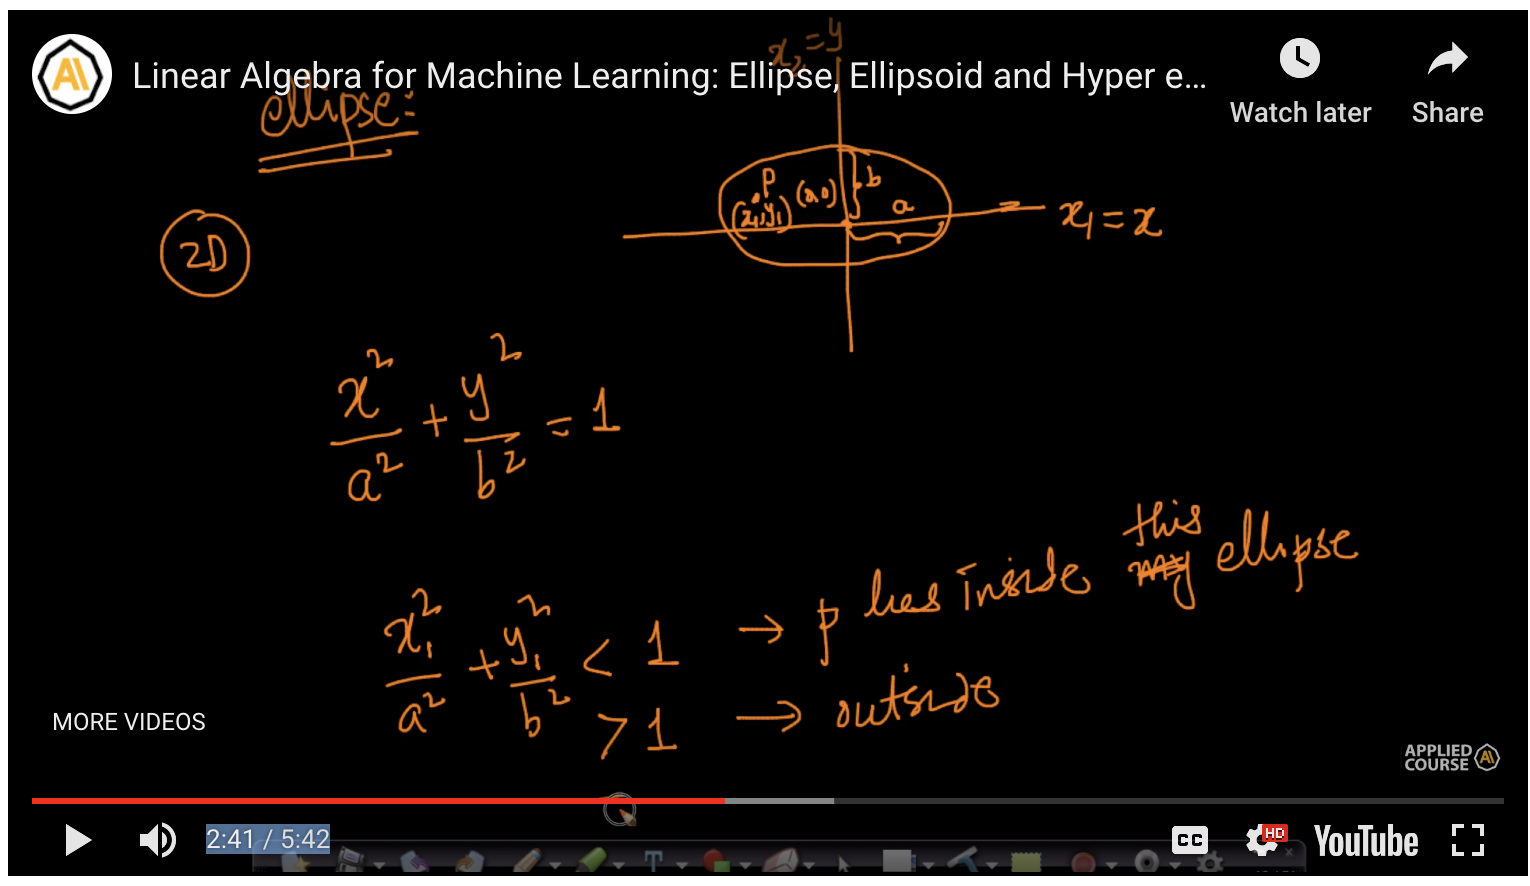 x₂ = y
Linear Algebra for Machine Learning: Ellipse, Ellipsoid and Hyper e...
Watch later
Share
ellipse:
P
(x₁, y₁)
b
a
x₁ = x
2D
x²/a² + y²/b² = 1
x₁²/a² + y₁²/b² < 1 → p lies inside this ellipse
> 1 → outside
MORE VIDEOS
APPLIED
COURSE
2:41 / 5:42
CC
HD
YouTube
T